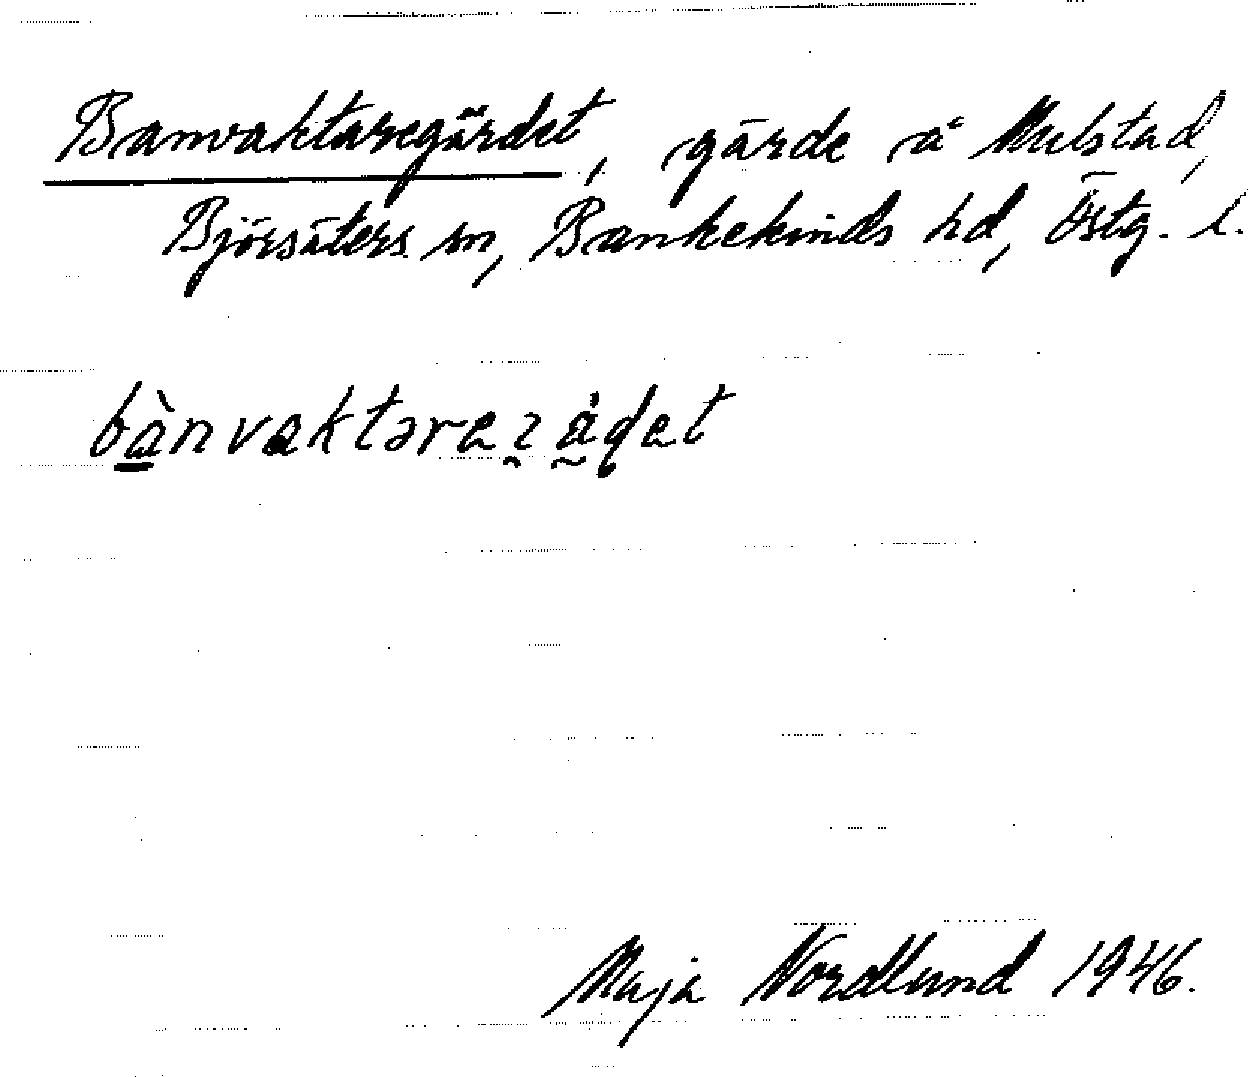 Banvaktaregärdet, gärde å Mulstad,
Björsäters sn, Bankekinds hd, Östg. l.
bànvaktərеɀädet
Maja Nordlund 1946.